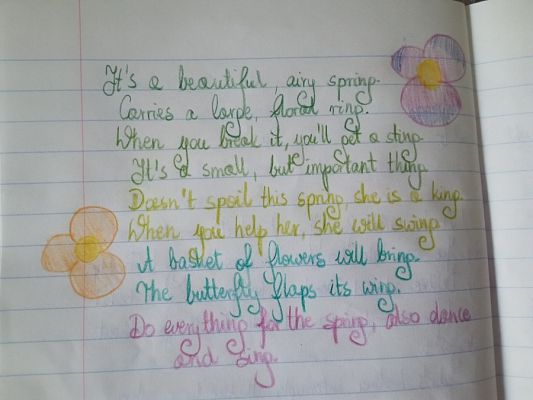 It's a beautiful, airy spring.
Carries a large, floral ring.
When you break it, you'll get a sting.
It's a small, but important thing.
Doesn't spoil this spring, she is a king.
When you help her, she will swing.
A basket of flowers will bring.
The butterfly flaps its wing.
Do everything for the spring, also dance
and sing.